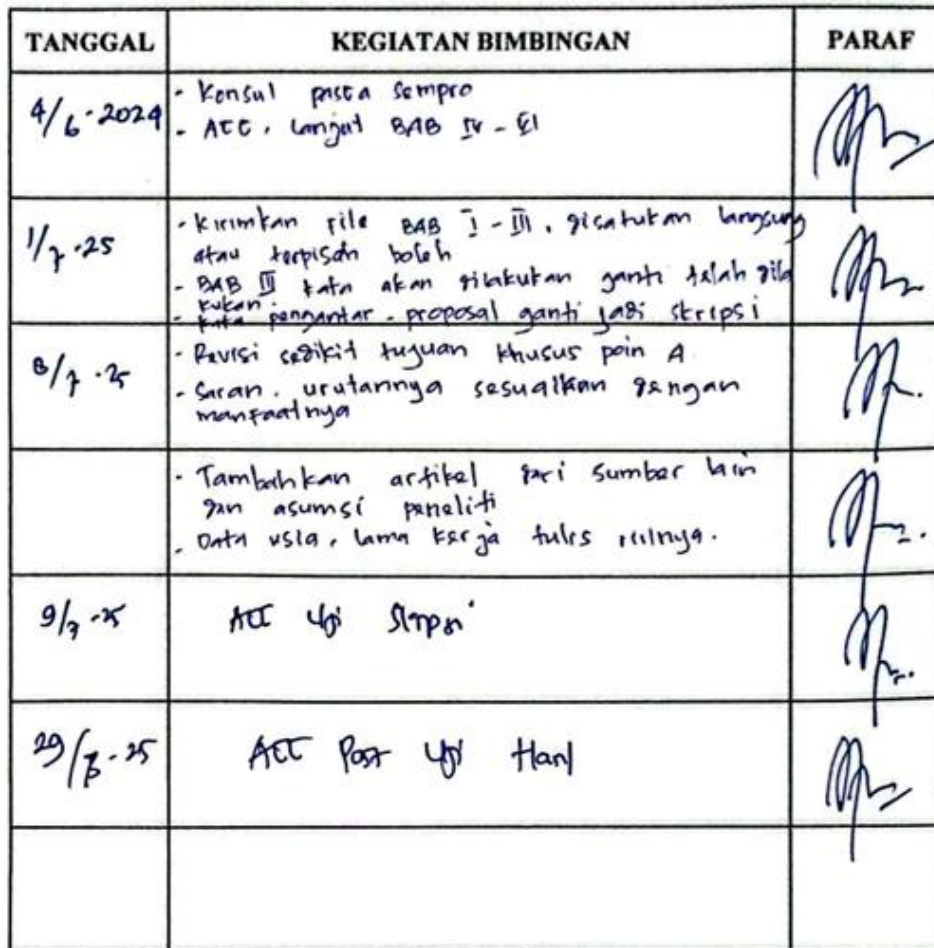 TANGGAL KEGIATAN BIMBINGAN PARAF
4/6-2024
- Konsul pasca sempro
- ACC, lanjut BAB IV - VI
1/7-25
- Kirimkan file BAB I - III, disatukan langsung
atau terpisah boleh
- BAB III kata akan dilakukan ganti telah dila
kukan
- kata pengantar - proposal ganti jadi skripsi
8/7-25
- Revisi sedikit tujuan khusus poin A
- Saran, urutannya sesuaikan dengan
manfaatnya
- Tambahkan artikel dari sumber lain
dan asumsi peneliti
- Data usia, lama kerja tulis riilnya.
9/7-25
ACC Uji Skripsi
ACC Post Uji Hasil